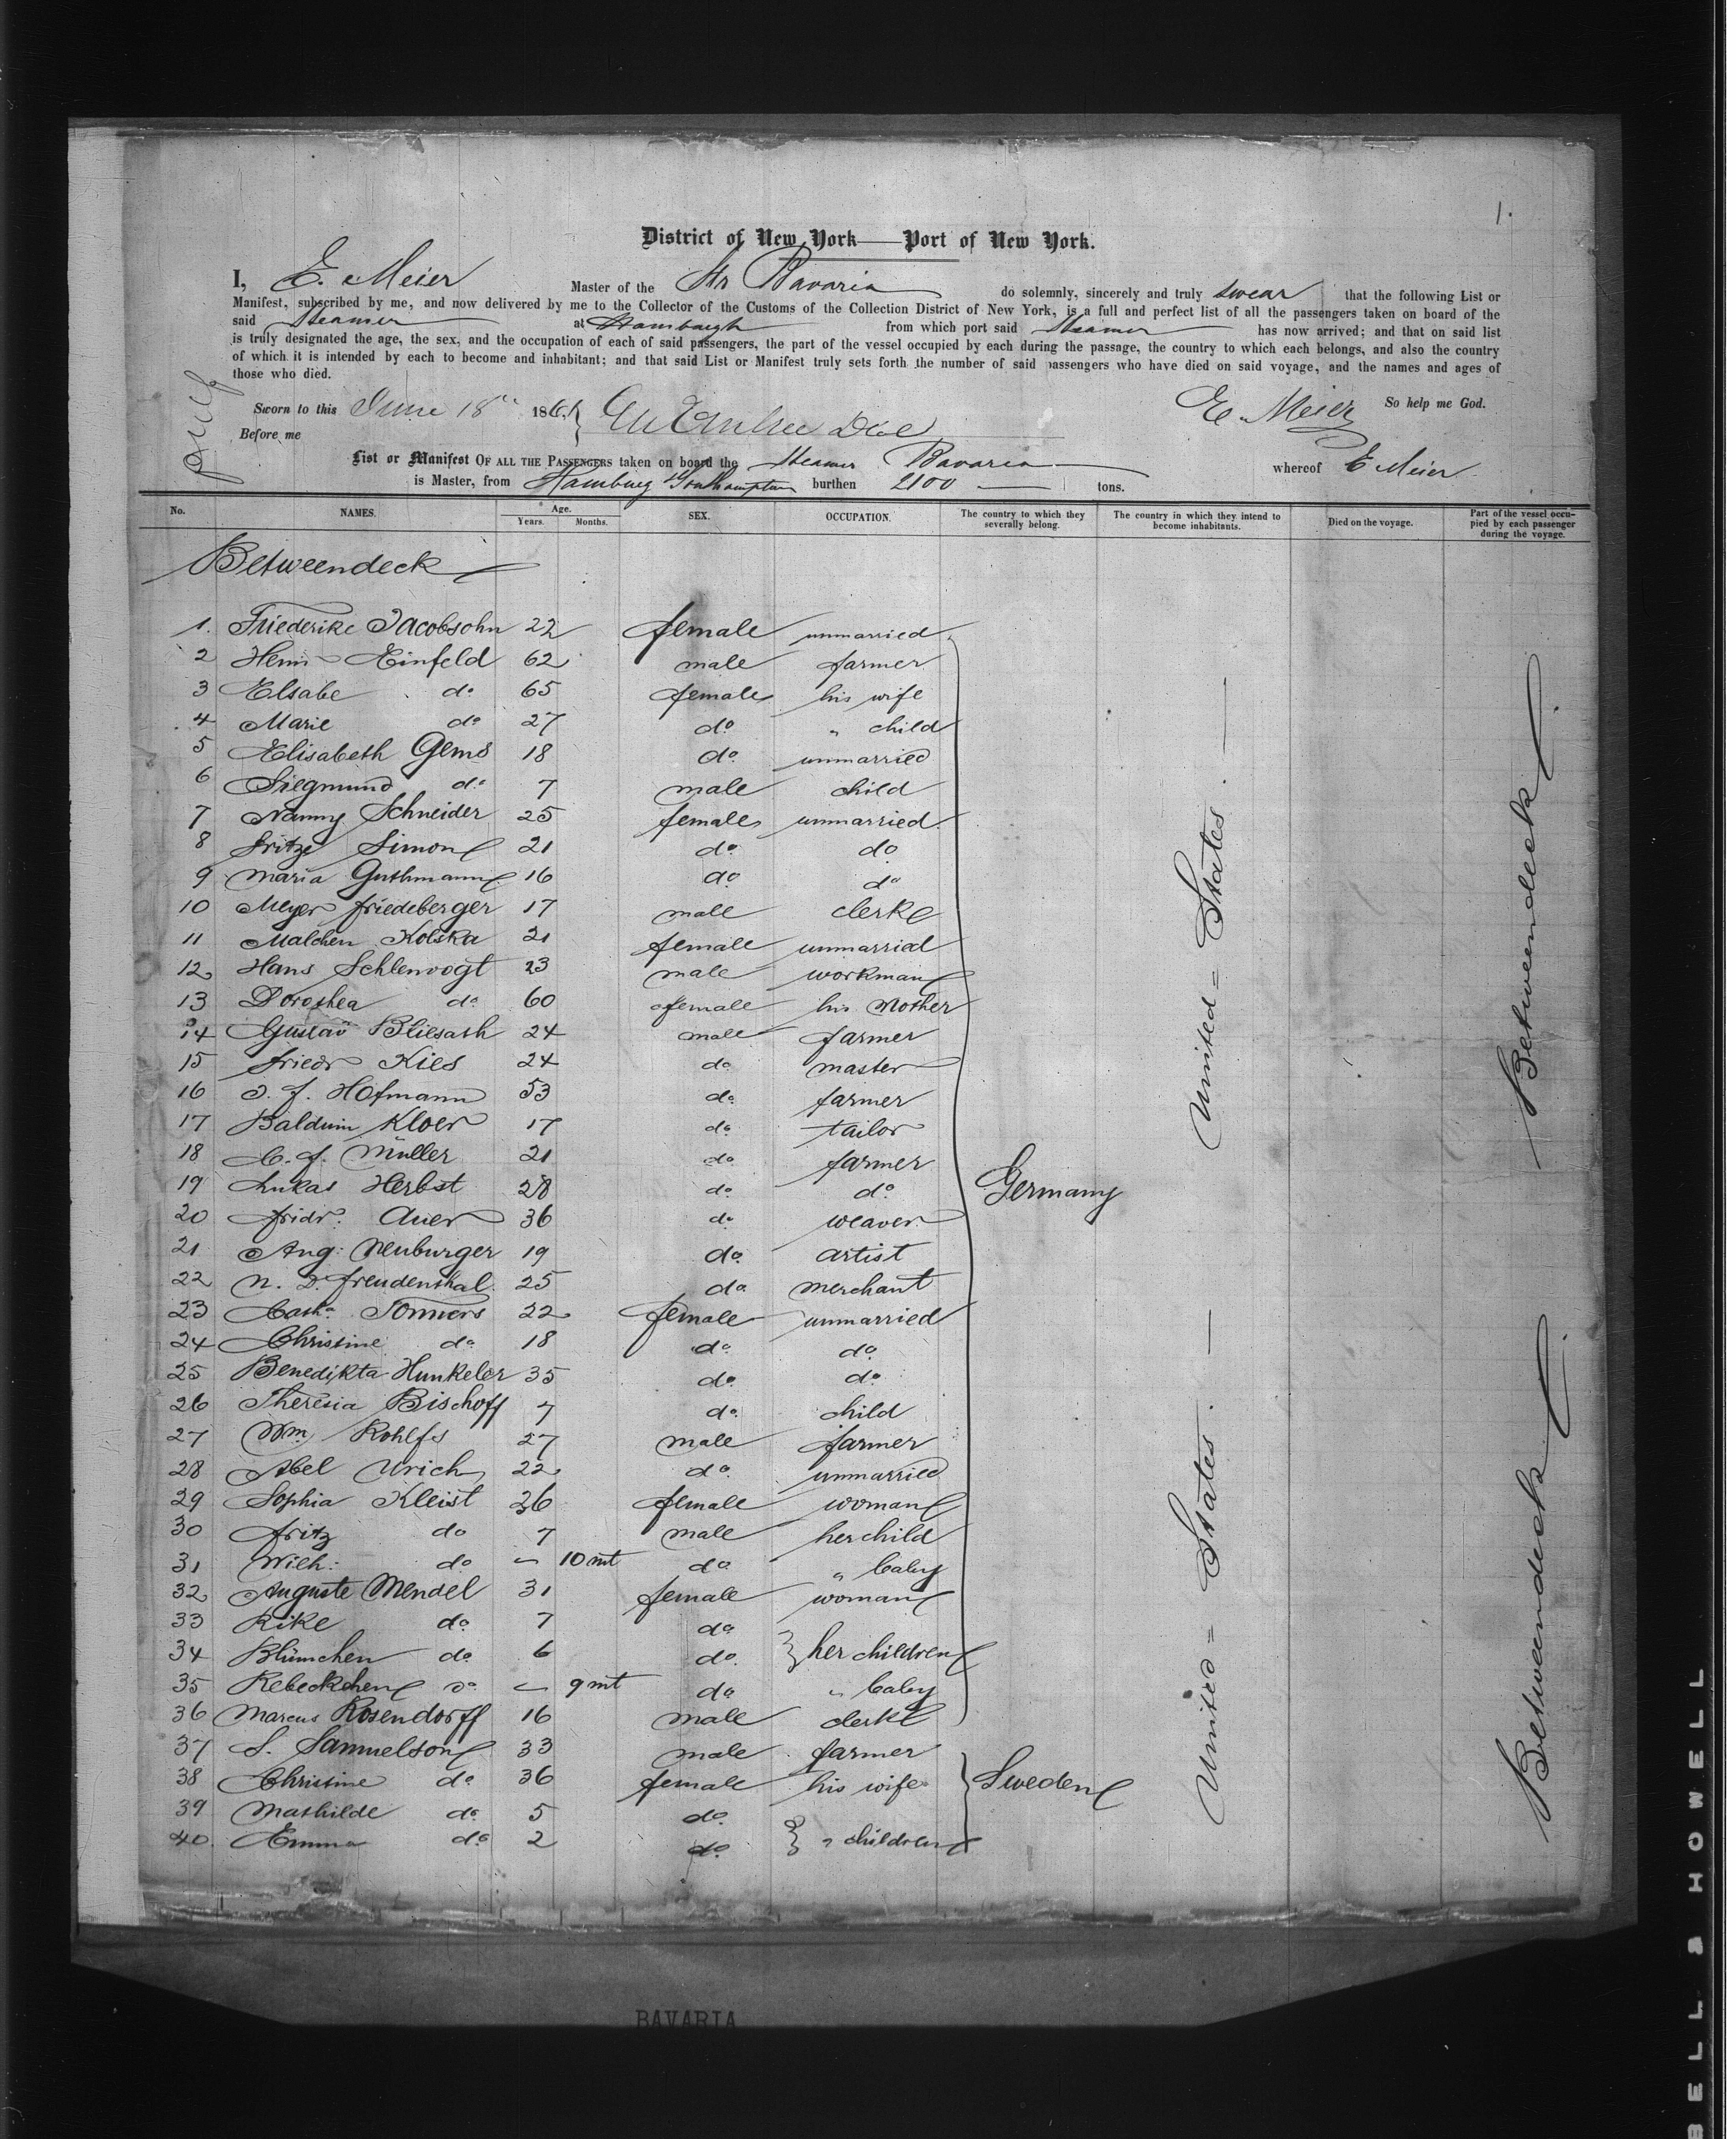 1.
District of New York—Port of New York.
I, E. Meier Master of the Str Bavaria do solemnly, sincerely and truly swear that the following List or
Manifest, subscribed by me, and now delivered by me to the Collector of the Customs of the Collection District of New York, is a full and perfect list of all the passengers taken on board of the
said Steamer at Hamburgh from which port said Steamer has now arrived; and that on said list
is truly designated the age, the sex, and the occupation of each of said passengers, the part of the vessel occupied by each during the passage, the country to which each belongs, and also the country
of which it is intended by each to become and inhabitant; and that said List or Manifest truly sets forth the number of said passengers who have died on said voyage, and the names and ages of
those who died.
Sworn to this June 18th 1861 E. Meier So help me God.
Before me
List or Manifest OF ALL THE PASSENGERS taken on board the Steamer Bavaria whereof E Meier
is Master, from Hamburg & Southampton burthen 2100 tons.
No. NAMES. Age. Years. Months. SEX. OCCUPATION. The country to which they severally belong. The country in which they intend to become inhabitants. Died on the voyage. Part of the vessel occupied by each passenger during the voyage.
Betweendeck
1. Friederike Jacobsohn 22 female unmarried
2 Henn Einfeld 62 male farmer
3 Elsabe do 65 female his wife
4 Marie do 27 do " child
5 Elisabeth Gems 18 do. unmarried
6 Siegmund do 7 male child
7 Nanny Schneider 25 female unmarried.
8 Fritze Simon 21 do do
9 Maria Guthmann 16 do do
10 Meyer Friedeberger 17 male clerk
11 Malchen Kolska 21 female unmarried
12 Hans Schlenvogt 23 male workman
13 Dorothea do 60 female his Mother
14 Gustav Bliesath 24 male farmer
15 Friedr Kies 24 do master
16 J. F. Hofmann 53 do farmer
17 Balduin Kloer 17 do tailor
18 C. F. Müller 21 do farmer
19 Lukas Herbst 28 do do
20 Fridr. Auer 36 do weaver
21 Aug: Neuburger 19 do artist
22 N. D. Freudenthal 25 do merchant
23 Catha Tonners 22 female unmarried
24 Christine do 18 do do
25 Benedikta Hunkeler 35 do do
26 Theresia Bischoff 7 do child
27 Wm Rohlfs 27 male farmer
28 Abel Urich 22 do unmarried
29 Sophia Kleist 26 female woman
30 Fritz do 7 male her child
31 Wilh: do – 10 mt do " baby
32 Auguste Mendel 31 female woman
33 Rike do 7 do
34 Blümchen do 6 do her children
35 Rebeckchen do – 9 mt do " baby
36 Marcus Rosendorff 16 male clerk
37 S. Samuelson 33 male farmer
38 Christine do 36 female his wife
39 Mathilde do 5 do
40. Emma do 2 do " children
Germany
Sweden
United States.
United States.
Betweendeck
Betweendeck
BAVARIA
BELL & HOWELL